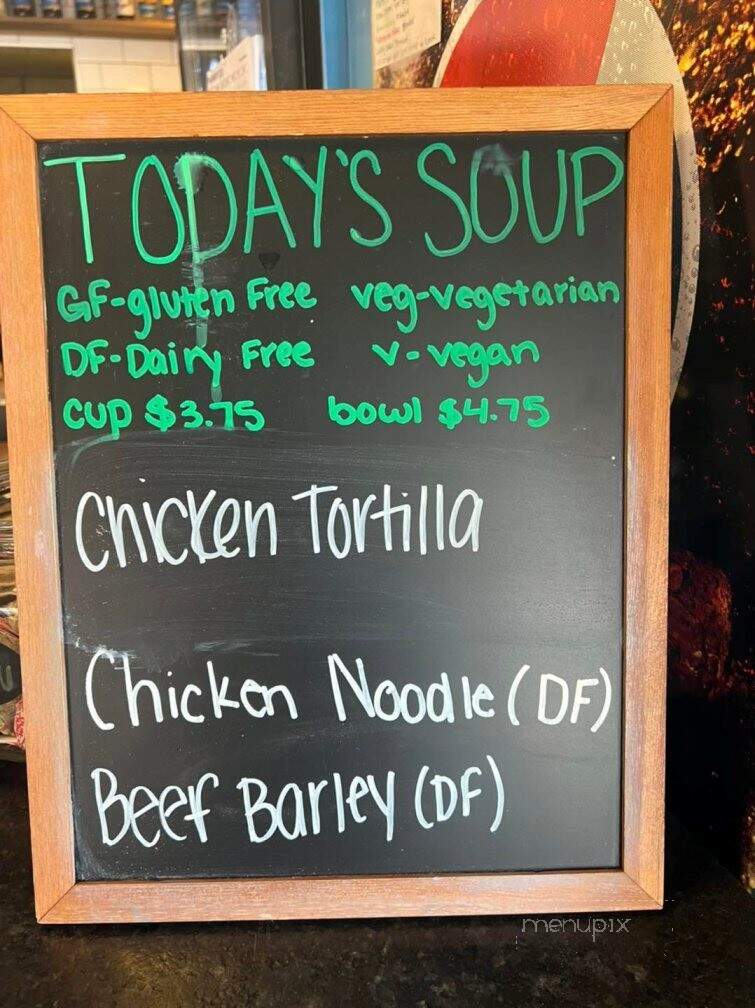 TODAY'S SOUP
GF-gluten Free veg-vegetarian
DF-Dairy Free v-vegan
cup $3.75 bowl $4.75
Chicken Tortilla
Chicken Noodle (DF)
Beef Barley (DF)
menupix